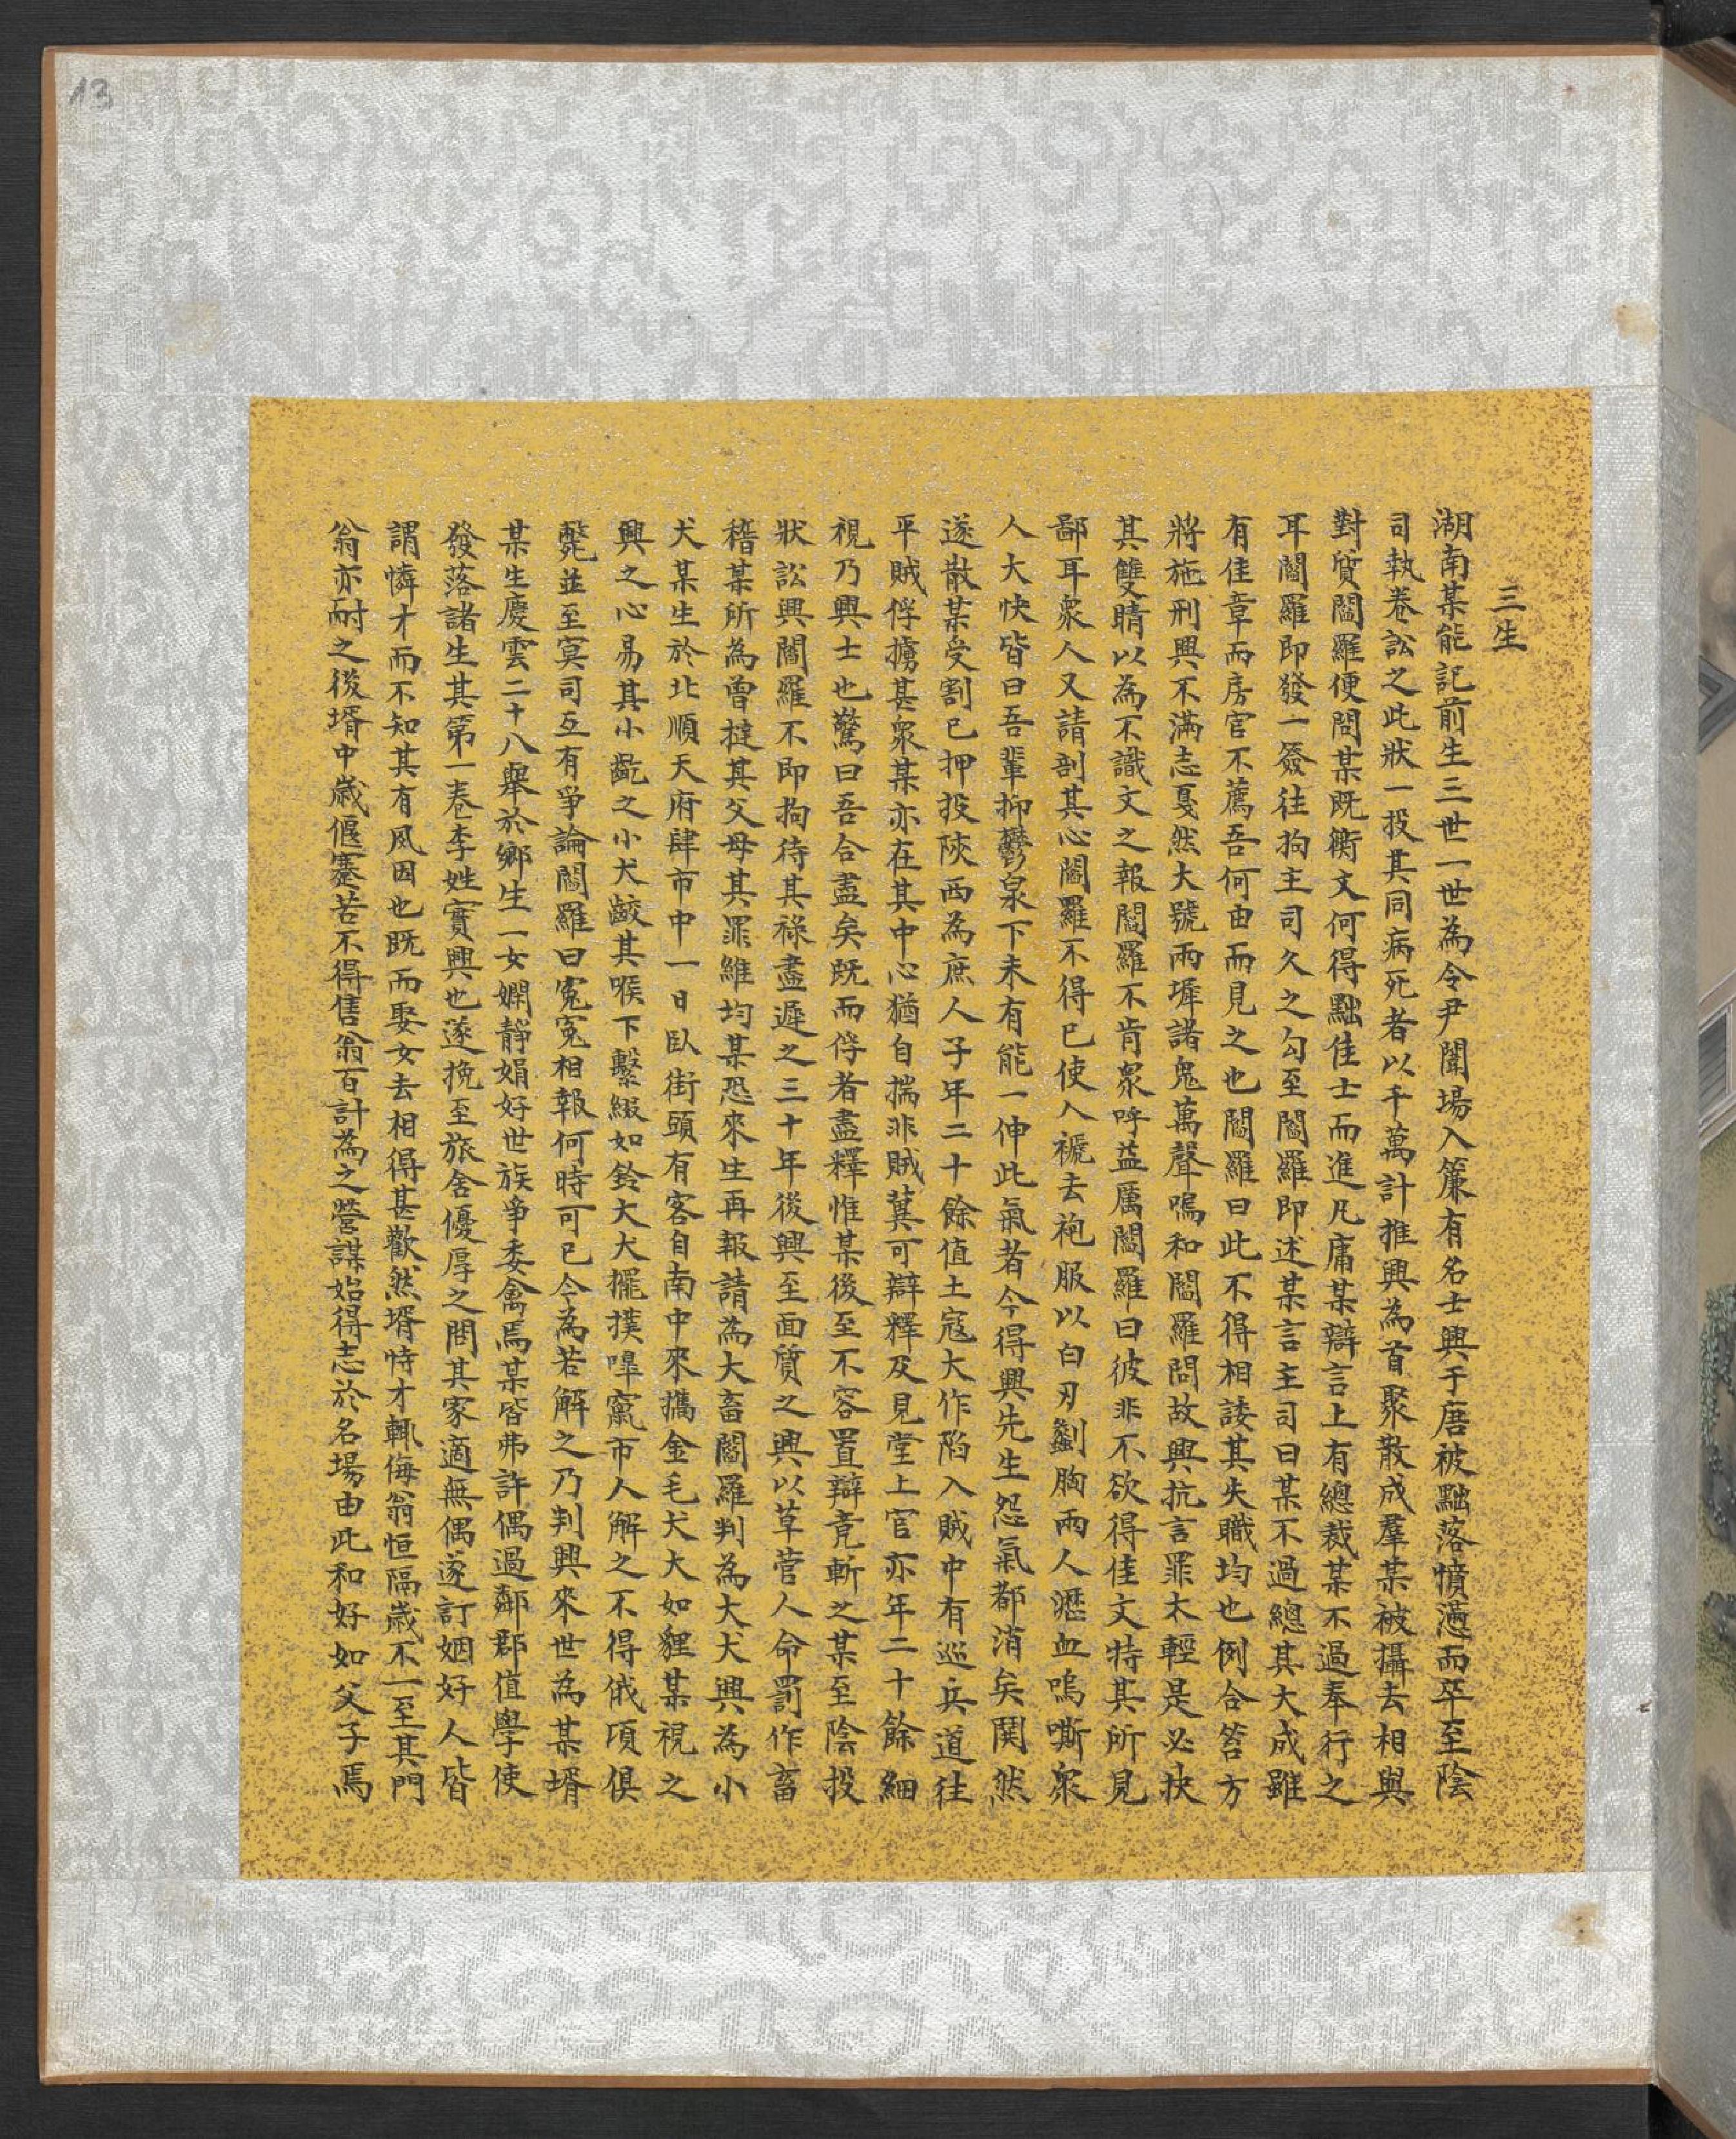 三生
湖南某能記前生三世一世為令尹闈場入簾有名士興于唐被黜落憤懣而卒至陰
司執卷訟之此狀一投其同病死者以千萬計推興為首聚散成羣某被攝去相與
對質閻羅便問某既衡文何得黜佳士而進凡庸某辯言上有總裁某不過奉行之
耳閻羅即發一簽往拘主司久之勾至閻羅即述某言主司曰某不過總其大成雖
有佳章而房官不薦吾何由而見之也閻羅曰此不得相諉其失職均也例合笞方
將施刑興不滿志戛然大號兩墀諸鬼萬聲鳴和閻羅問故興抗言罪太輕是必抉
其雙睛以為不識文之報閻羅不肯眾呼益厲閻羅曰彼非不欲得佳文特其所見
鄙耳眾人又請剖其心閻羅不得已使人褫去袍服以白刃劙胸兩人瀝血鳴嘶眾
人大快皆曰吾輩抑鬱泉下未有能一伸此氣者今得興先生怨氣都消矣鬨然
遂散某受剖已押投陝西為庶人子年二十餘值土寇大作陷入賊中有巡兵道往
平賊俘擄甚眾某亦在其中心猶自揣非賊冀可辯釋及見堂上官亦年二十餘細
視乃興士也驚曰吾合盡矣既而俘者盡釋惟某後至不容置辯竟斬之某至陰投
狀訟興閻羅不即拘待其祿盡遲之三十年後興至面質之興以草菅人命罰作畜
稽某所為曾撻其父母其罪維均某恐來生再報請為大畜閻羅判為大犬興為小
犬某生於北順天府肆市中一日臥街頭有客自南中來攜金毛犬大如貍某視之
興之心易其小齕之小犬齩其喉下繫綴如鈴大犬擺撲嗥竄市人解之不得俄頃俱
斃並至冥司互有爭論閻羅曰寃寃相報何時可已今為若解之乃判興來世為某壻
某生慶雲二十八舉於鄉生一女嫻靜娟好世族爭委禽焉某皆弗許偶過鄰郡值學使
發落諸生其第一卷李姓實興也遂挽至旅舍優厚之問其家適無偶遂訂姻好人皆
謂憐才而不知其有夙因也既而娶女去相得甚歡然壻恃才輒侮翁恒隔歲不一至其門
翁亦耐之後壻中歲偃蹇苦不得售翁百計為之營謀始得志於名場由此和好如父子焉
13